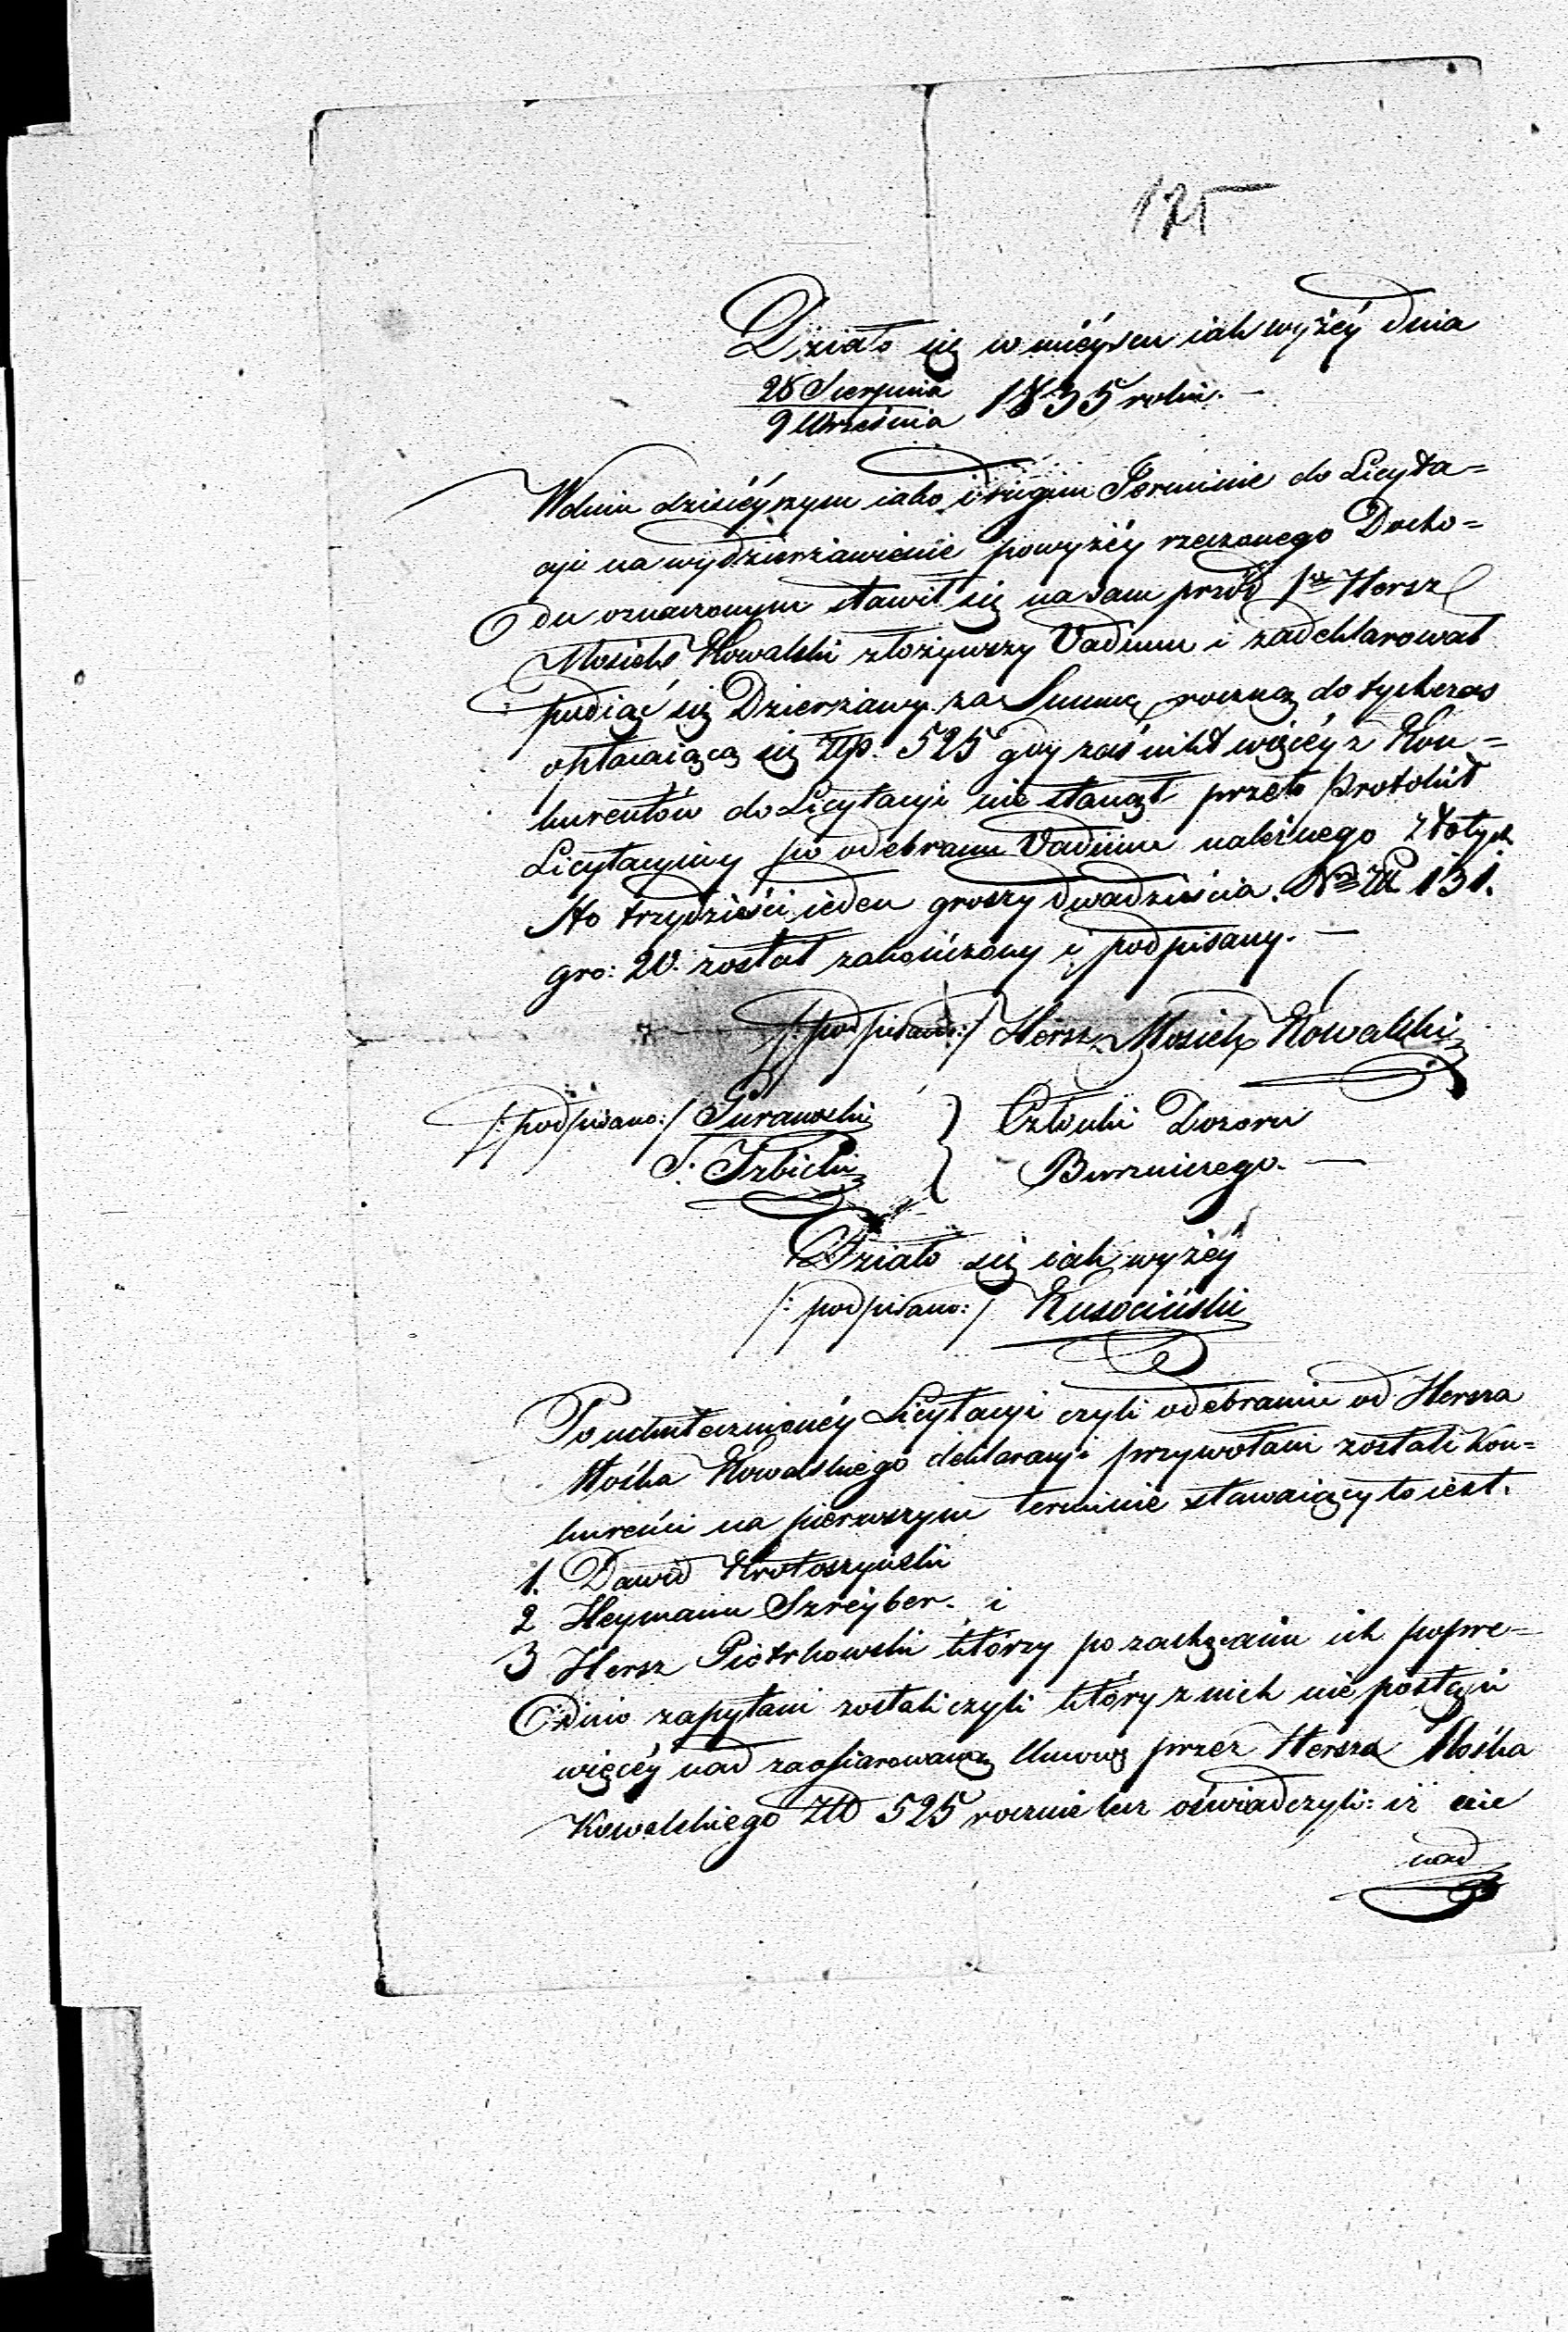 125
Działo się w mieyscu iak wyżéy dnia
28 Sierpnia
9 Września 1835 roku. —
W dniu dzisiéyszym iako drugim Terminie do Licyta=
cyi na wydzierżawienie powyżéy rzeczonego Docho=
du oznaczonym stawił się na sam przód Hersz
Mosiek Kowalski złożywszy Vadium i zadeklarował
podiąć się Dzierżawy za Summę roczną dotychczas
opłacaiącą się Złp. 525 gdy zaś nikt więcéy z Kon=
kurentów do Licytacyi nie stanął przeto Protokół
Licytacyiny po odebraniu Vadium należnego złotych
sto trzydzieści ieden groszy dwadzieścia. 131.
gro: 20. został zakończony i podpisany. —
/: podpisano:/ Hersz Mosiek Kowalski
/: podpisano:/ Guranowski } Członki Dozoru
J: Izbicki } Bużniczego. —
Działo się iak wyżéy
/: podpisano:/ Kusociński
Po uskutecznionéy Licytacyi czyli odebraniu od Hersza
Mośka Kowalskiego deklaracyi przywołani zostali Kon=
kurenci na pierwszym terminie stawaiący to iest.
1. Dawid Krotoszyński
2 Heymann Szreyber. i
3 Hersz Piotrkowski którzy po zachęcaniu ich poprze=
dnio zapytani zostali czyli który z nich nie postąpi
więcéy nad zaofiarowaną Umową przez Hersza Mośka
Kowalskiego Złp 525 rocznie lecz oświadczyli: iż nie
nad